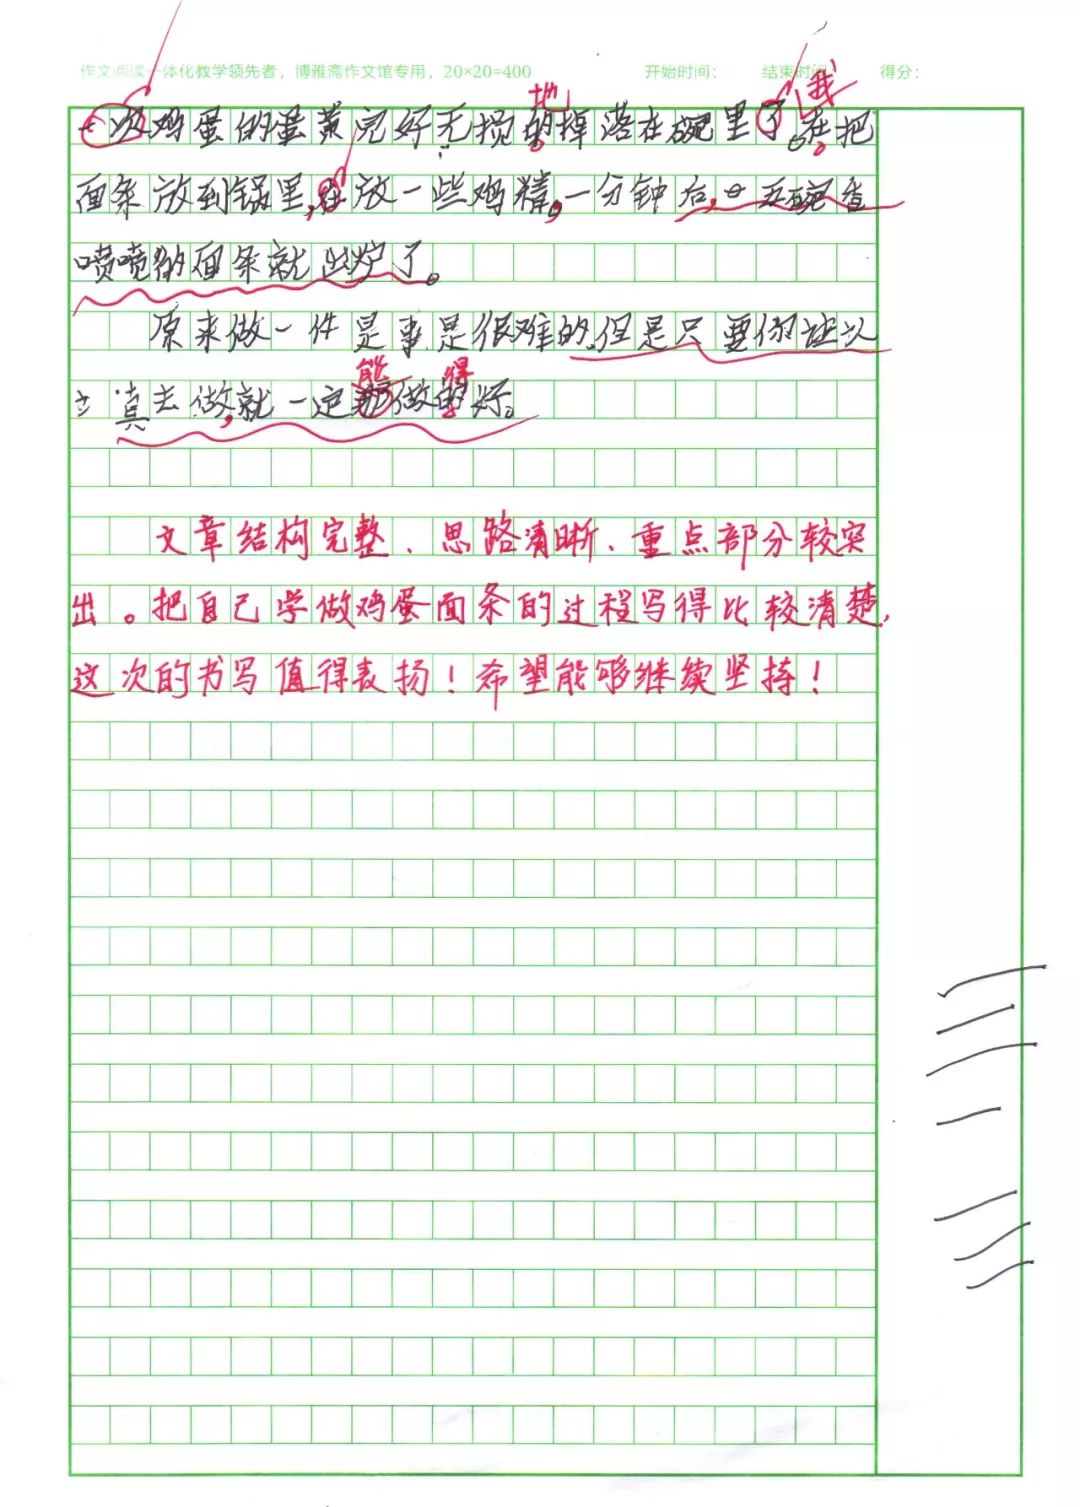 作文阅读一体化教学领先者，博雅斋作文馆专用，20×20=400 开始时间： 结束时间 得分：
地 我
一次鸡蛋的蛋黄完好无损的掉落在碗里了。在把
面条放到锅里,在放一些鸡精,一分钟后,一碗香
喷喷的面条就出炉了。
原来做一件是事是很难的.但是只要你
能 得
真去做,就一定那做的好。
文章结构完整、思路清晰、重点部分较突
出。把自己学做鸡蛋面条的过程写得比较清楚,
这次的书写值得表扬！希望能够继续坚持！